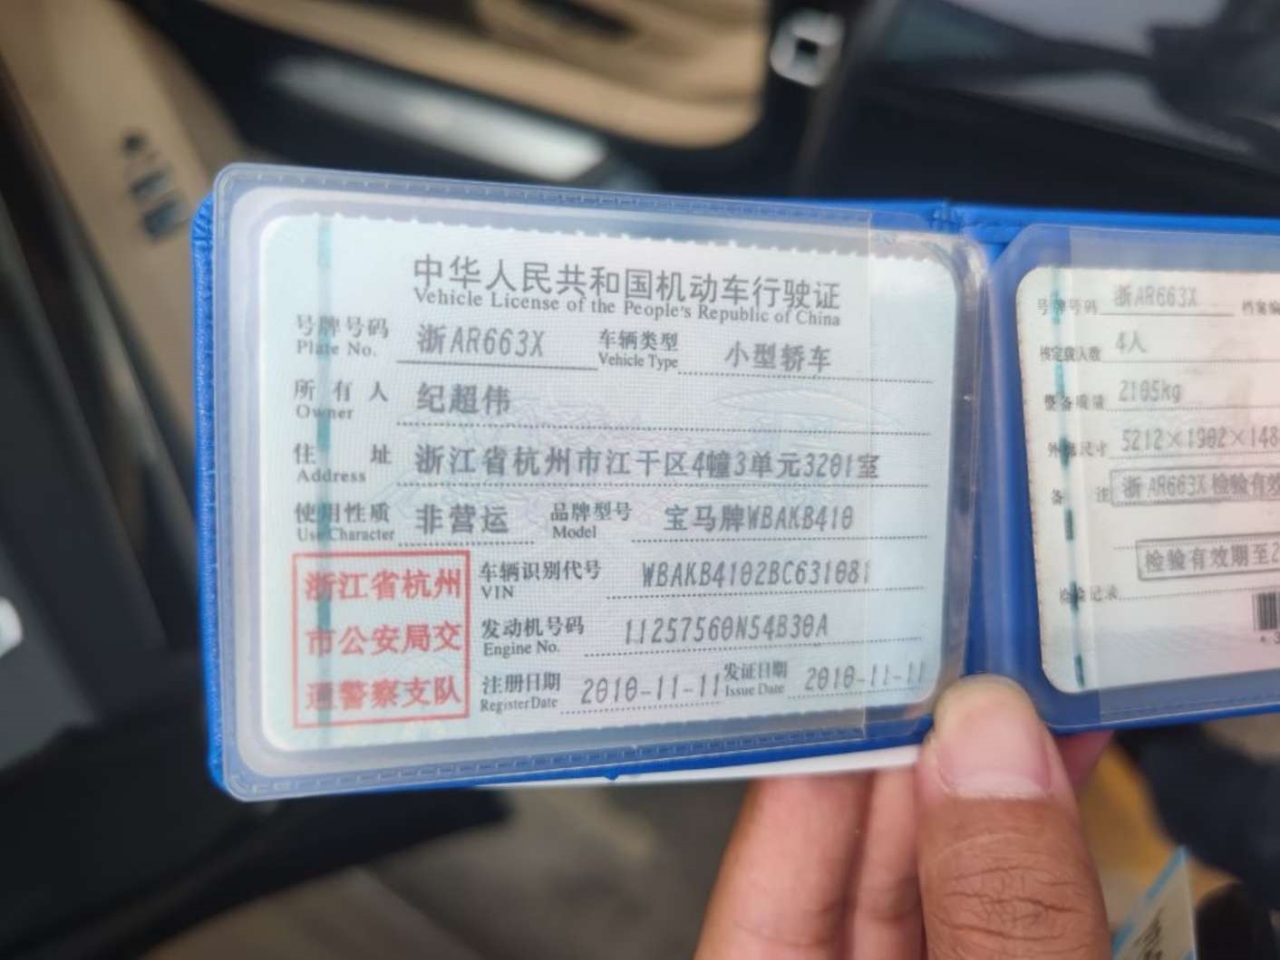 中华人民共和国机动车行驶证
Vehicle License of the People's Republic of China
号牌号码 浙AR663X 车辆类型 小型轿车
Plate No. Vehicle Type
所有人 纪超伟
Owner
住址 浙江省杭州市江干区4幢3单元3201室
Address
使用性质 非营运 品牌型号 宝马牌WBAKB410
Use Character Model
浙江省杭州
市公安局交
通警察支队
车辆识别代号 WBAKB4102BC631081
VIN
发动机号码 11257560N54B30A
Engine No.
注册日期 2010-11-11 发证日期 2010-11-11
Register Date Issue Date
号牌号码 浙AR663X 档案编
核定载人数 4人
整备质量 2105kg
外廓尺寸 5212×1902×148
备注 浙AR663X 检验有效
检验有效期至2
检验记录